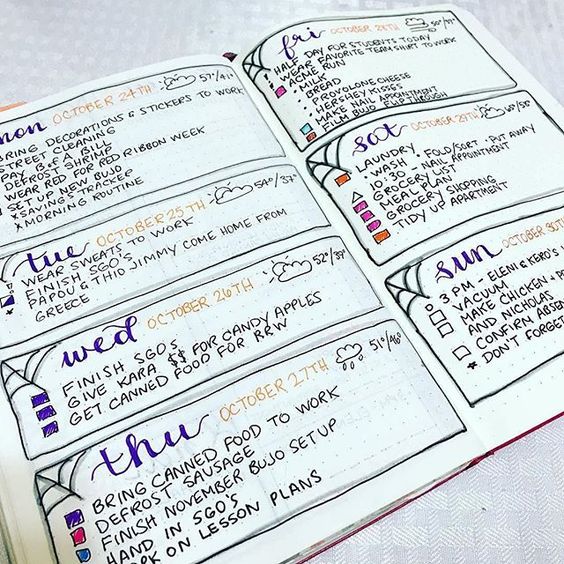 mon OCTOBER 24TH 57°/41°
BRING DECORATIONS & STICKERS TO WORK
STREET CLEANING
PAY B of A BILL
DEFROST SHRIMP
WEAR RED FOR RED RIBBON WEEK
SET UP NEW BUJO
*SAVINGS TRACKER
*MORNING ROUTINE
tue OCTOBER 25TH 54°/37°
WEAR SWEATS TO WORK
FINISH SGO'S
PAPOU & THIO JIMMY COME HOME FROM
GREECE
wed OCTOBER 26TH 52°/39°
FINISH SGOS
GIVE KARA $$ FOR CANDY APPLES
GET CANNED FOOD FOR RRW
thu OCTOBER 27TH 51°/46°
BRING CANNED FOOD TO WORK
DEFROST SAUSAGE
FINISH NOVEMBER BUJO SETUP
HAND IN SGO'S
WORK ON LESSON PLANS
fri OCTOBER 28TH 50°/39°
HALF DAY FOR STUDENTS TODAY
WEAR FAVORITE TEAM SHIRT TO WORK
ACME RUN
• MILK
• BREAD
• PROVOLONE CHEESE
• HERSHEY KISSES
MAKE NAIL APPOINTMENT
FILM BUJO FLIP THROUGH
sat OCTOBER 29TH
LAUNDRY
• WASH • FOLD/SORT • PUT AWAY
10:30 - NAIL APPOINTMENT
GROCERY LIST
MEAL PLAN
GROCERY SHOPPING
TIDY UP APARTMENT
sun OCTOBER 30TH
3 PM - ELENI & KERO'S
VACUUM
MAKE CHICKEN +
AND NICHOLAS
CONFIRM
* DON'T FORGET